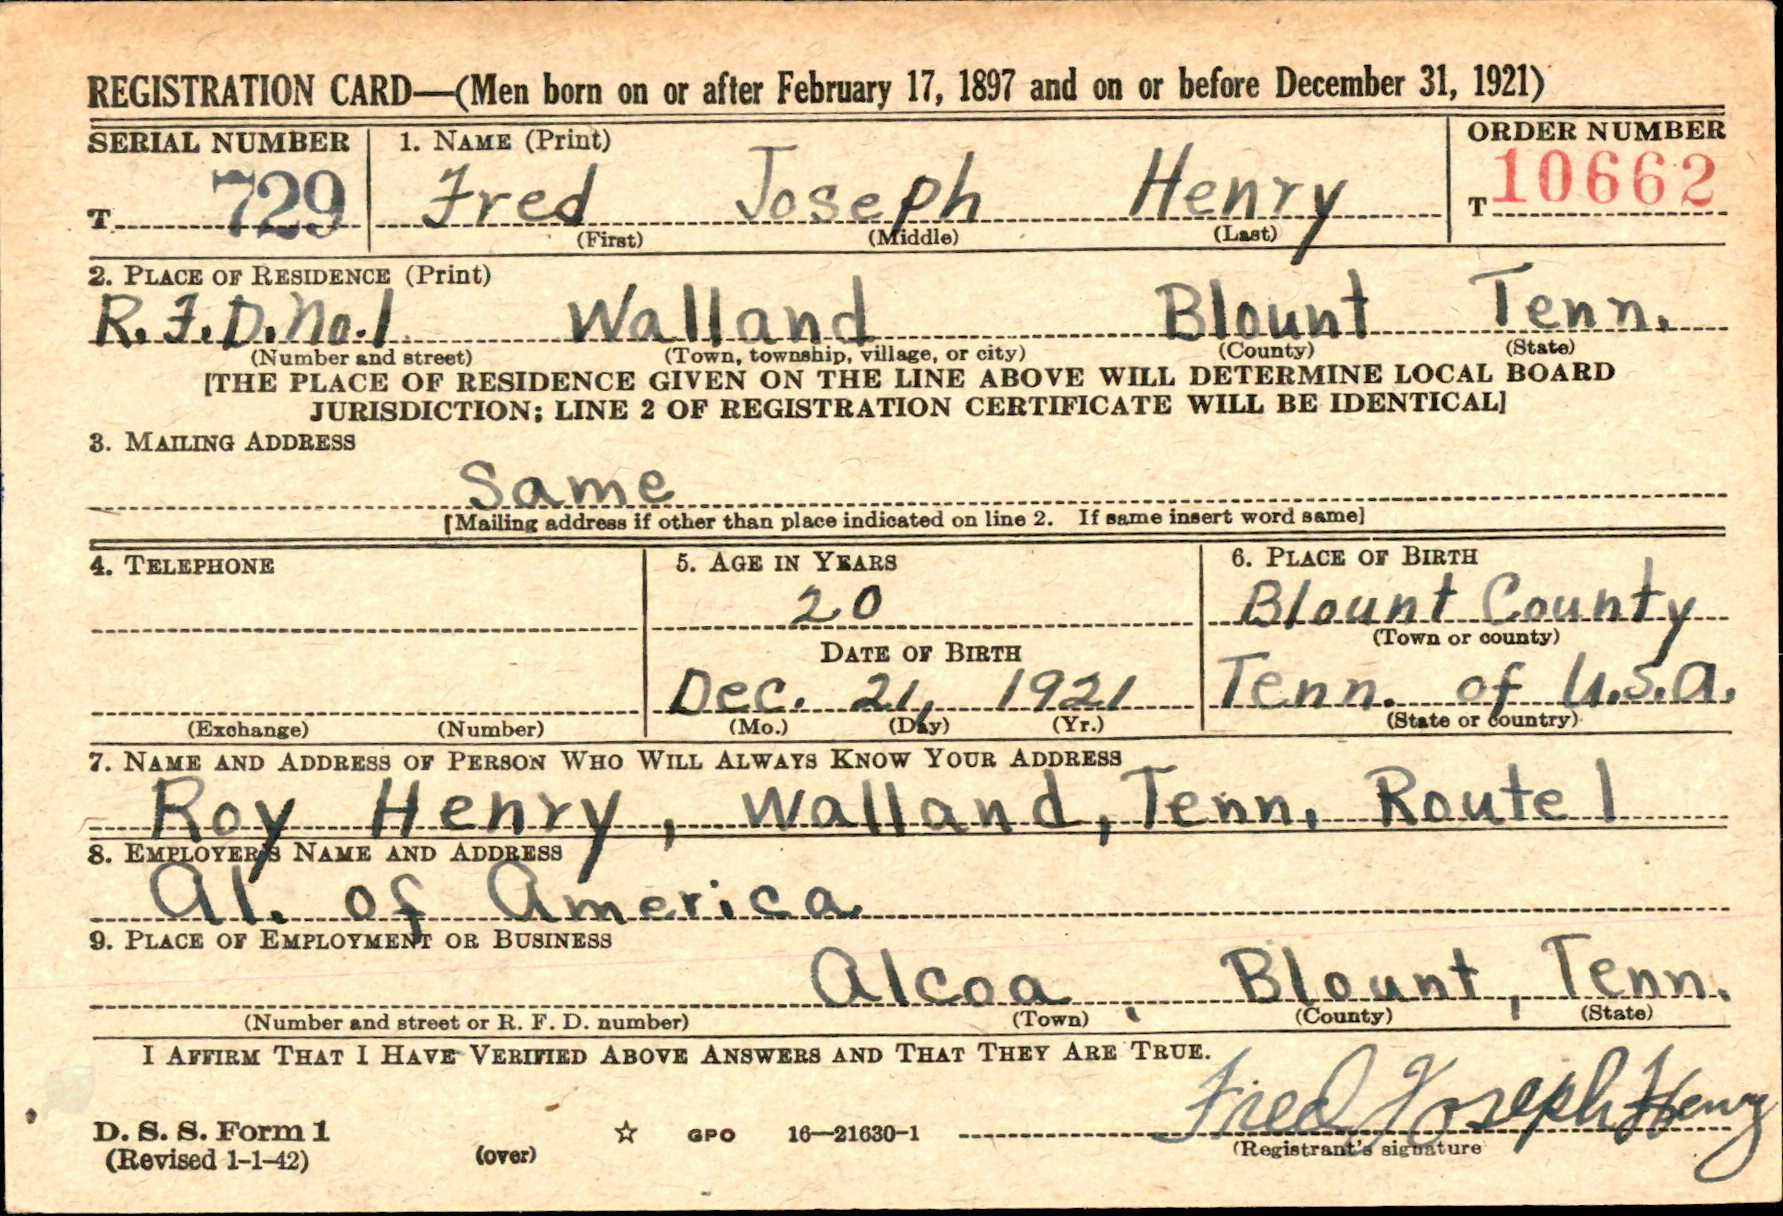 REGISTRATION CARD—(Men born on or after February 17, 1897 and on or before December 31, 1921)
SERIAL NUMBER 1. NAME (Print) ORDER NUMBER
T 729 Fred Joseph Henry T 10662
(First) (Middle) (Last)
2. PLACE OF RESIDENCE (Print)
R.F.D. No. 1 Walland Blount Tenn.
(Number and street) (Town, township, village, or city) (County) (State)
[THE PLACE OF RESIDENCE GIVEN ON THE LINE ABOVE WILL DETERMINE LOCAL BOARD
JURISDICTION; LINE 2 OF REGISTRATION CERTIFICATE WILL BE IDENTICAL]
3. MAILING ADDRESS
Same
[Mailing address if other than place indicated on line 2. If same insert word same]
4. TELEPHONE 5. AGE IN YEARS 6. PLACE OF BIRTH
20 Blount County
(Town or county)
DATE OF BIRTH
Dec. 21, 1921 Tenn. of U.S.A.
(Exchange) (Number) (Mo.) (Day) (Yr.) (State or country)
7. NAME AND ADDRESS OF PERSON WHO WILL ALWAYS KNOW YOUR ADDRESS
Roy Henry, Walland, Tenn. Route 1
8. EMPLOYER'S NAME AND ADDRESS
Al. of America
9. PLACE OF EMPLOYMENT OR BUSINESS
Alcoa, Blount, Tenn.
(Number and street or R. F. D. number) (Town) (County) (State)
I AFFIRM THAT I HAVE VERIFIED ABOVE ANSWERS AND THAT THEY ARE TRUE.
Fred Joseph Henry
D. S. S. Form 1
(Revised 1-1-42) (over) ☆ GPO 16—21630-1 (Registrant's signature